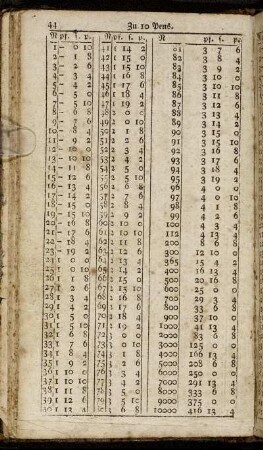 44 Zu 10 Pens.
N pf. s. p. N pf. s. p. N pf. s. p.
1 – 0 10 41 1 14 2 81 3 7 6
2 – 1 8 42 1 15 0 82 3 8 4
3 – 2 6 43 1 15 10 83 3 9 2
4 – 3 4 44 1 16 8 84 3 10 0
5 – 4 2 45 1 17 6 85 3 10 10
6 – 5 0 46 1 18 4 86 3 11 8
7 – 5 10 47 1 19 2 87 3 12 6
8 – 6 8 48 2 0 0 88 3 13 4
9 – 7 6 49 2 0 10 89 3 14 2
10 – 8 4 50 2 1 8 90 3 15 0
11 – 9 2 51 2 2 6 91 3 15 10
12 – 10 0 52 2 3 4 92 3 16 8
13 – 10 10 53 2 4 2 93 3 17 6
14 – 11 8 54 2 5 0 94 3 18 4
15 – 12 6 55 2 5 10 95 3 19 2
16 – 13 4 56 2 6 8 96 4 0 0
17 – 14 2 57 2 7 6 97 4 0 10
18 – 15 0 58 2 8 4 98 4 1 8
19 – 15 10 59 2 9 2 99 4 2 6
20 – 16 8 60 2 10 0 100 4 3 4
21 – 17 6 61 2 10 10 112 4 13 4
22 – 18 4 62 2 11 8 200 8 6 8
23 – 19 2 63 2 12 6 300 12 10 0
24 1 0 0 64 2 13 4 365 15 4 2
25 1 0 10 65 2 14 2 400 16 13 4
26 1 1 8 66 2 15 0 500 20 16 8
27 1 2 6 67 2 15 10 600 25 0 0
28 1 3 4 68 2 16 8 700 29 3 4
29 1 4 2 69 2 17 6 800 33 6 8
30 1 5 0 70 2 18 4 900 37 10 0
31 1 5 10 71 2 19 2 1000 41 13 4
32 1 6 8 72 3 0 0 2000 83 6 8
33 1 7 6 73 3 0 10 3000 125 0 0
34 1 8 4 74 3 1 8 4000 166 13 4
35 1 9 2 75 3 2 6 5000 208 6 8
36 1 10 0 76 3 3 4 6000 250 0 0
37 1 10 10 77 3 4 2 7000 291 13 4
38 1 11 8 78 3 5 0 8000 333 6 8
39 1 12 6 79 3 5 10 9000 375 0 0
40 1 13 4 80 3 6 8 10000 416 13 4